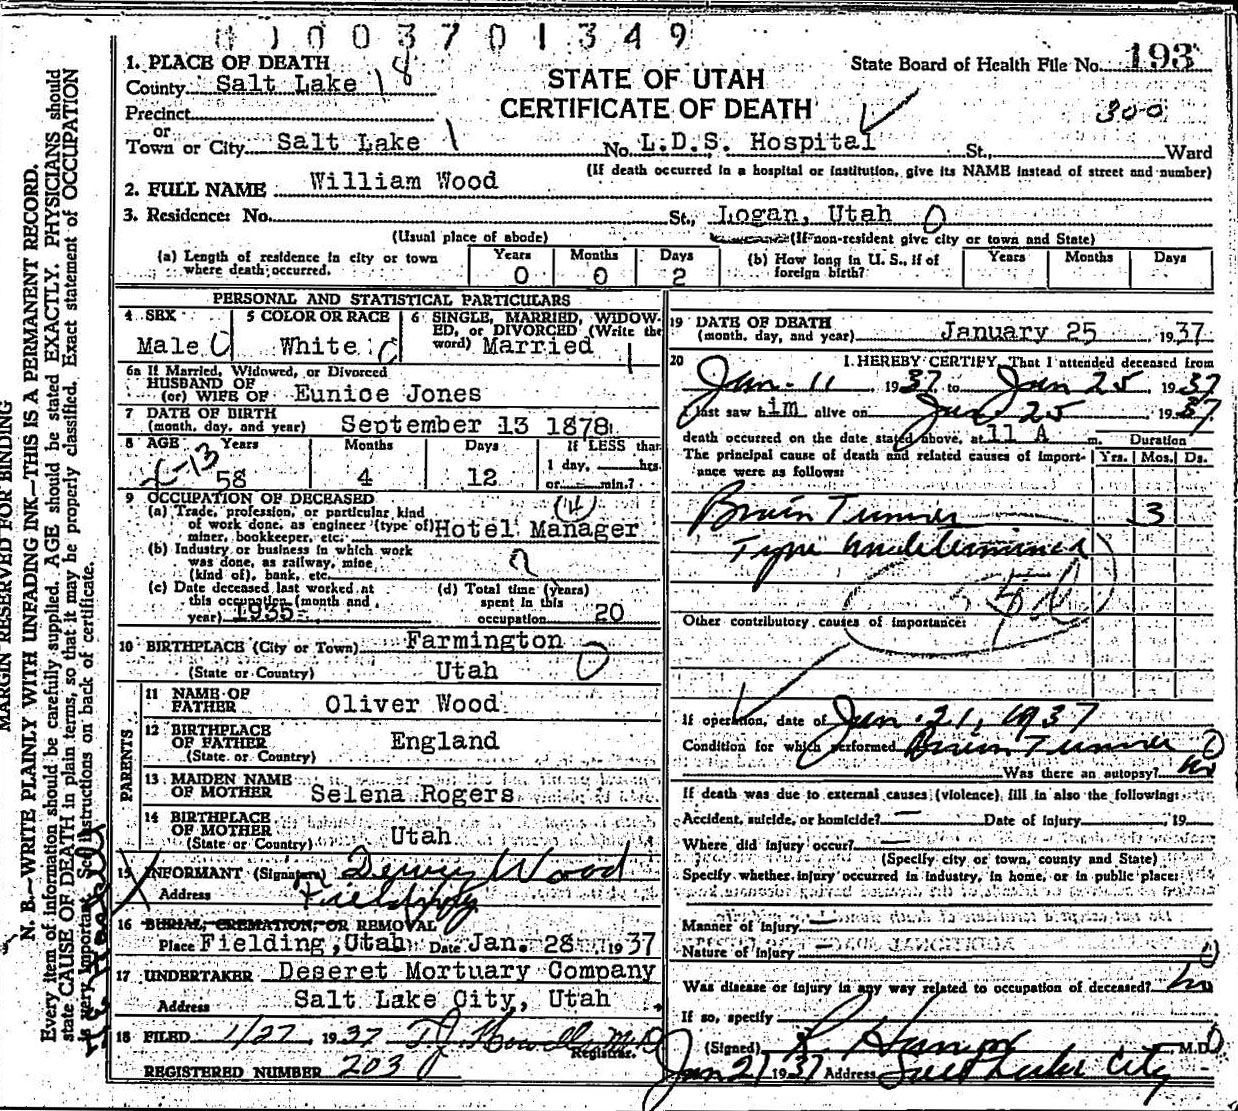 0003701349
1. PLACE OF DEATH
County Salt Lake 18
Precinct
or
Town or City Salt Lake 1
STATE OF UTAH
CERTIFICATE OF DEATH
State Board of Health File No. 193
300
No. L.D.S. Hospital St., Ward
(If death occurred in a hospital or institution, give its NAME instead of street and number)
2. FULL NAME William Wood
3. Residence: No. St., Logan, Utah 0
(Usual place of abode) (If non-resident give city or town and State)
(a) Length of residence in city or town where death occurred. Years 0 Months 0 Days 2
(b) How long in U. S., if of foreign birth? Years Months Days
PERSONAL AND STATISTICAL PARTICULARS
4 SEX Male
5 COLOR OR RACE White
6 SINGLE, MARRIED, WIDOWED, or DIVORCED (Write the word) Married
6a If Married, Widowed, or Divorced
HUSBAND OF
(or) WIFE OF Eunice Jones
7 DATE OF BIRTH
(month, day, and year) September 13 1878
8 AGE Years 58 Months 4 Days 12 If LESS than 1 day, hrs. or min.?
9 OCCUPATION OF DECEASED
(a) Trade, profession, or particular kind
of work done, as engineer (type of)
miner, bookkeeper, etc. Hotel Manager
(b) Industry or business in which work
was done, as railway, mine
(kind of), bank, etc.
(c) Date deceased last worked at
this occupation (month and
year) 1935
(d) Total time (years)
spent in this
occupation 20
10 BIRTHPLACE (City or Town) Farmington
(State or Country) Utah
PARENTS
11 NAME OF FATHER Oliver Wood
12 BIRTHPLACE OF FATHER (State or Country) England
13 MAIDEN NAME OF MOTHER Selena Rogers
14 BIRTHPLACE OF MOTHER (State or Country) Utah
15 INFORMANT (Signature) Dewey Wood
Address Fielding
16 BURIAL, CREMATION, OR REMOVAL
Place Fielding, Utah Date Jan. 28 1937
17 UNDERTAKER Deseret Mortuary Company
Address Salt Lake City, Utah
18 FILED 1/27 1937 T.J. Howells M.D.
Registrar.
REGISTERED NUMBER 203
19 DATE OF DEATH
(month, day, and year) January 25 1937
20 I HEREBY CERTIFY, That I attended deceased from
Jan. 11 1937 to Jan 25 1937
I last saw him alive on Jan 25 1937
death occurred on the date stated above, at 11 A m. Duration
The principal cause of death and related causes of importance were as follows: Yrs. Mos. Ds.
Brain Tumor 3
Type undetermined
Other contributory causes of importance:
If operation, date of Jan. 21, 1937
Condition for which performed Brain Tumor
Was there an autopsy? no
If death was due to external causes (violence) fill in also the following:
Accident, suicide, or homicide? — Date of injury 19
Where did injury occur? —
(Specify city or town, county and State)
Specify whether injury occurred in industry, in home, or in public place:
Manner of injury —
Nature of injury —
Was disease or injury in any way related to occupation of deceased? no
If so, specify
(Signed) M.D.
Jan 27 1937 Address Salt Lake City
MARGIN RESERVED FOR BINDING
N. B.—WRITE PLAINLY WITH UNFADING INK—THIS IS A PERMANENT RECORD.
Every item of information should be carefully supplied. AGE should be stated EXACTLY. PHYSICIANS should
state CAUSE OF DEATH in plain terms, so that it may be properly classified. Exact statement of OCCUPATION
is very important. See instructions on back of certificate.